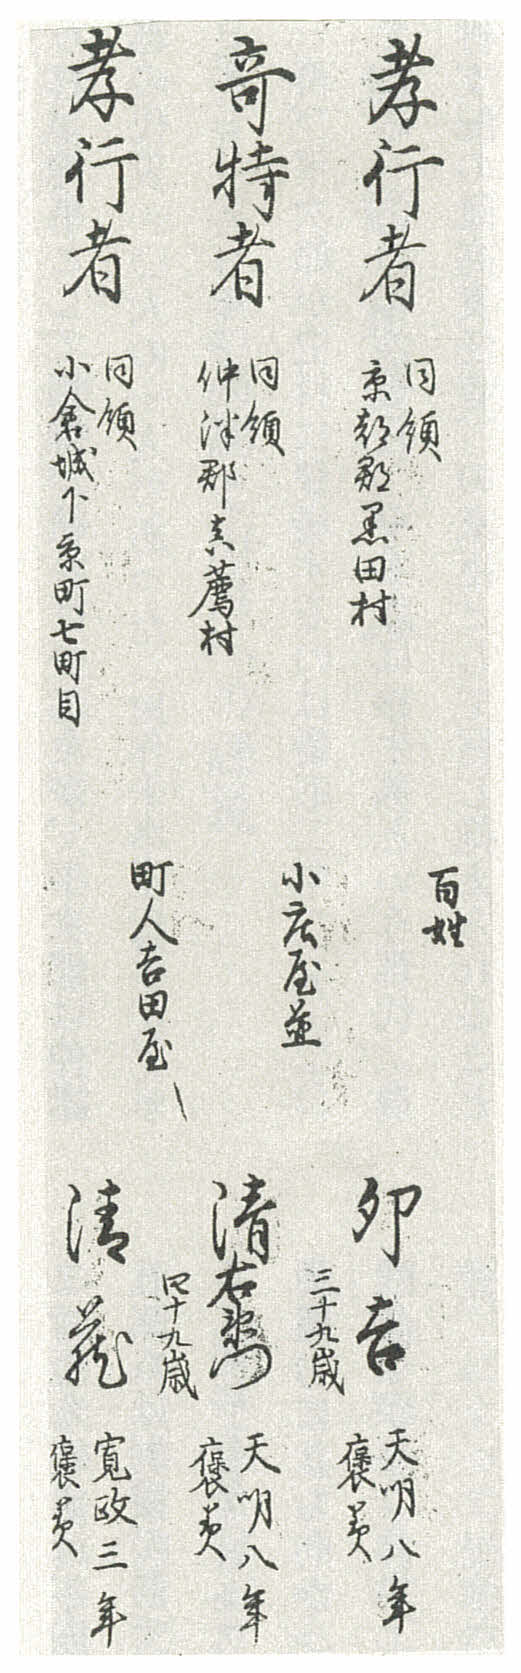 孝行者
同領
京都郡黒田村
百姓
卯吉
三十九歳
天明八年
褒美
奇特者
同領
仲津郡真薦村
小庄屋並
清右衛門
四十九歳
天明八年
褒美
孝行者
同領
小倉城下京町七町目
町人吉田屋
清蔵
寛政三年
褒美